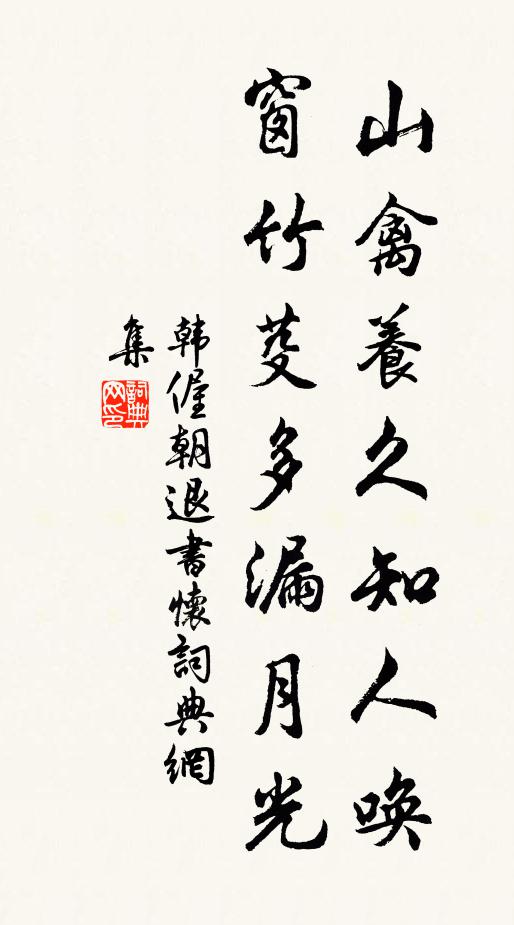 山禽養久知人喚
窗竹芟多漏月光
韩偓朝退書懷詞典網
集
詞典
网印